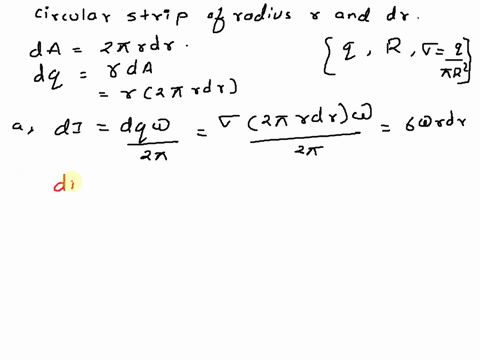 circular strip of radius r and dr.
dA = 2πrdr.
{q, R, σ = q/πR²}
dq = r dA
= r(2πrdr)
a, dI = dqω/2π = σ(2πrdr)ω/2π = σωrdr
di